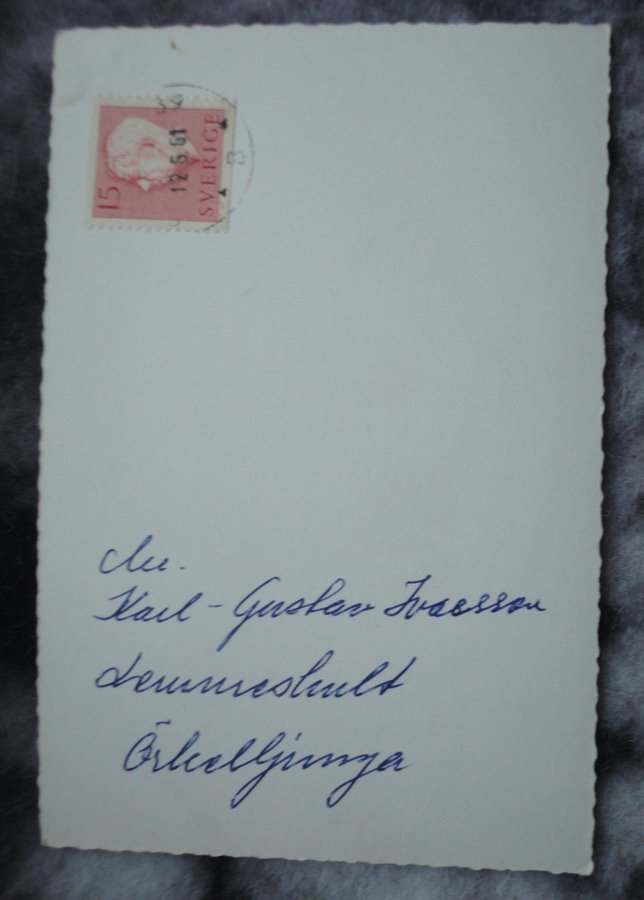 15
SVERIGE
12.6.61
8
Herr
Karl-Gustav Ivarsson
Lemmeshult
Örkelljunga